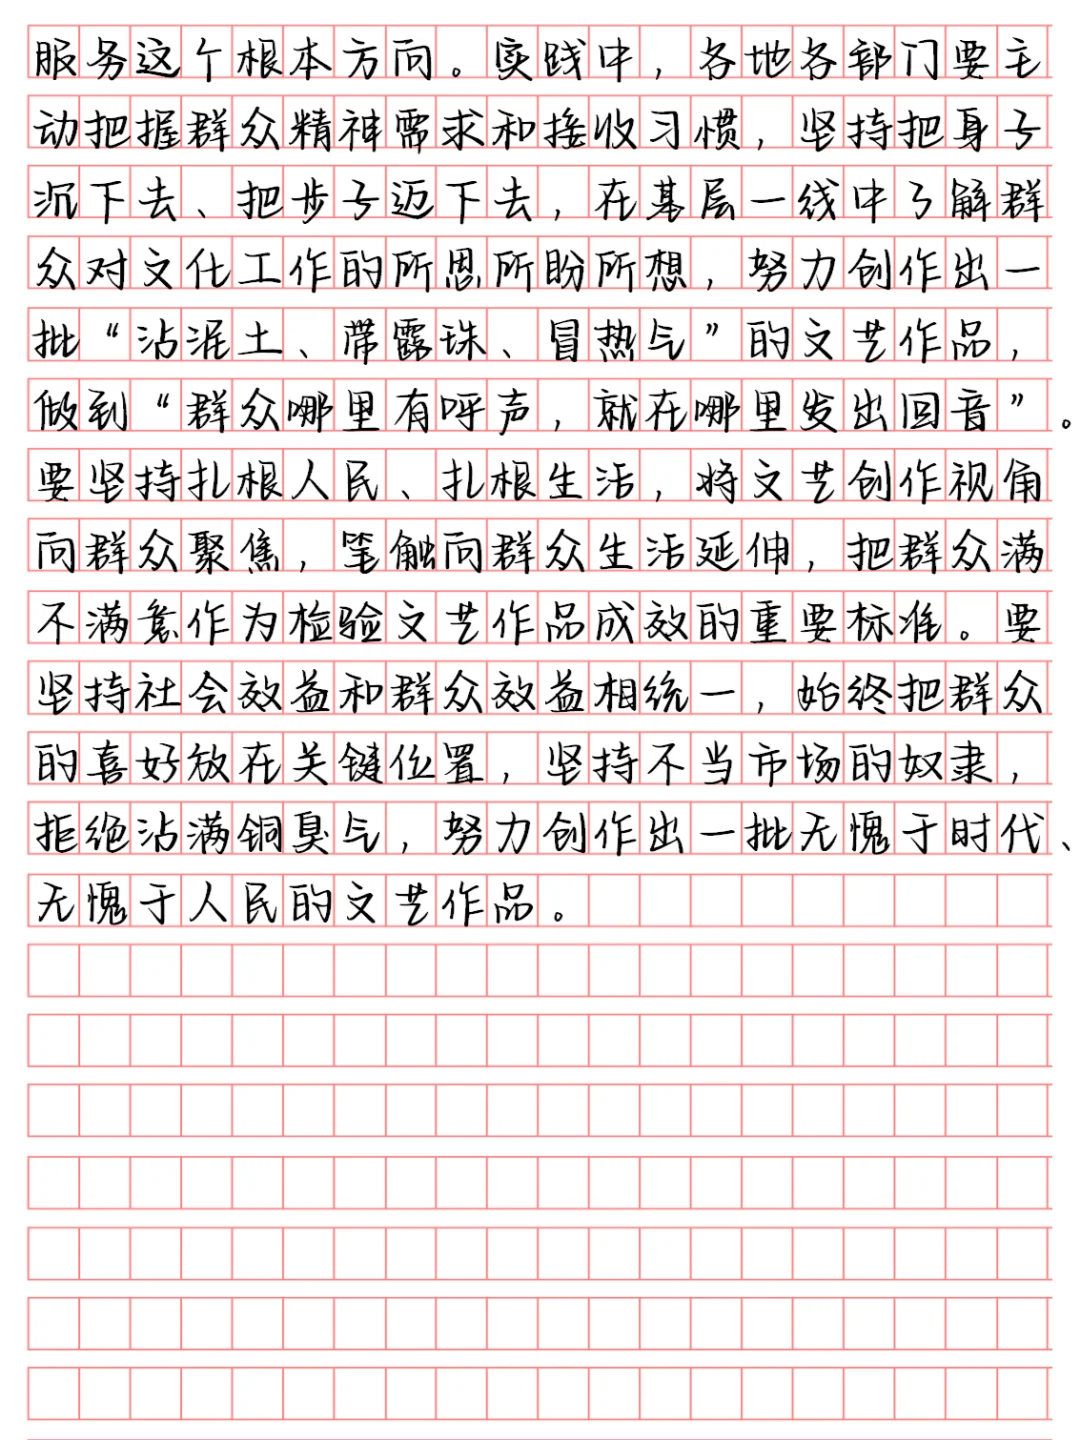 服务这个根本方向。实践中，各地各部门要主
动把握群众精神需求和接收习惯，坚持把身子
沉下去、把步子迈下去，在基层一线中了解群
众对文化工作的所思所盼所想，努力创作出一
批“沾泥土、带露珠、冒热气”的文艺作品，
做到“群众哪里有呼声，就在哪里发出回音”。
要坚持扎根人民、扎根生活，将文艺创作视角
向群众聚焦，笔触向群众生活延伸，把群众满
不满意作为检验文艺作品成效的重要标准。要
坚持社会效益和群众效益相统一，始终把群众
的喜好放在关键位置，坚持不当市场的奴隶，
拒绝沾满铜臭气，努力创作出一批无愧于时代、
无愧于人民的文艺作品。